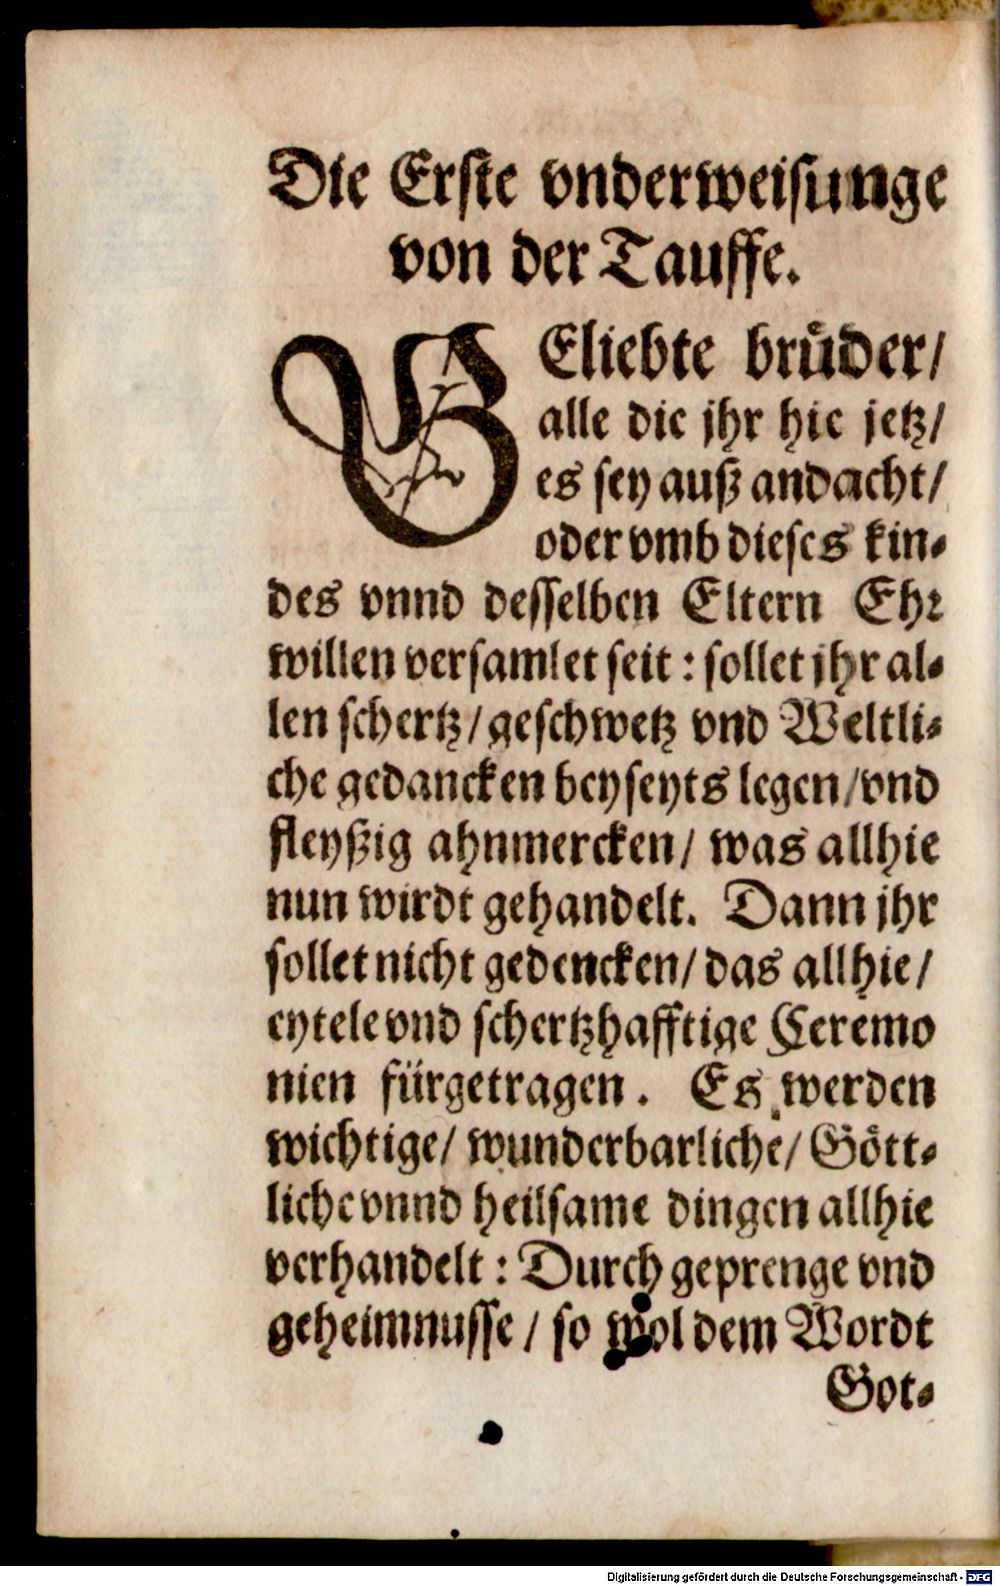 Die Erste vnderweisunge
von der Tauffe.
GEliebte brůder/
alle die jhr hie jetz/
es sey auß andacht/
oder vmb dieses kin-
des vnnd desselben Eltern Ehr
willen versamlet seit : sollet jhr al-
len schertz/ geschwetz vnd Weltli-
che gedancken beyseyts legen/vnd
fleyßig ahnmercken/ was allhie
nun wirdt gehandelt. Dann jhr
sollet nicht gedencken/ das allhie/
eytele vnd schertzhafftige Ceremo
nien fürgetragen. Es werden
wichtige/ wunderbarliche/ Gött-
liche vnnd heilsame dingen allhie
verhandelt : Durch geprenge vnd
geheimnusse / so wol dem Wordt
Got-
Digitalisierung gefördert durch die Deutsche Forschungsgemeinschaft - DFG